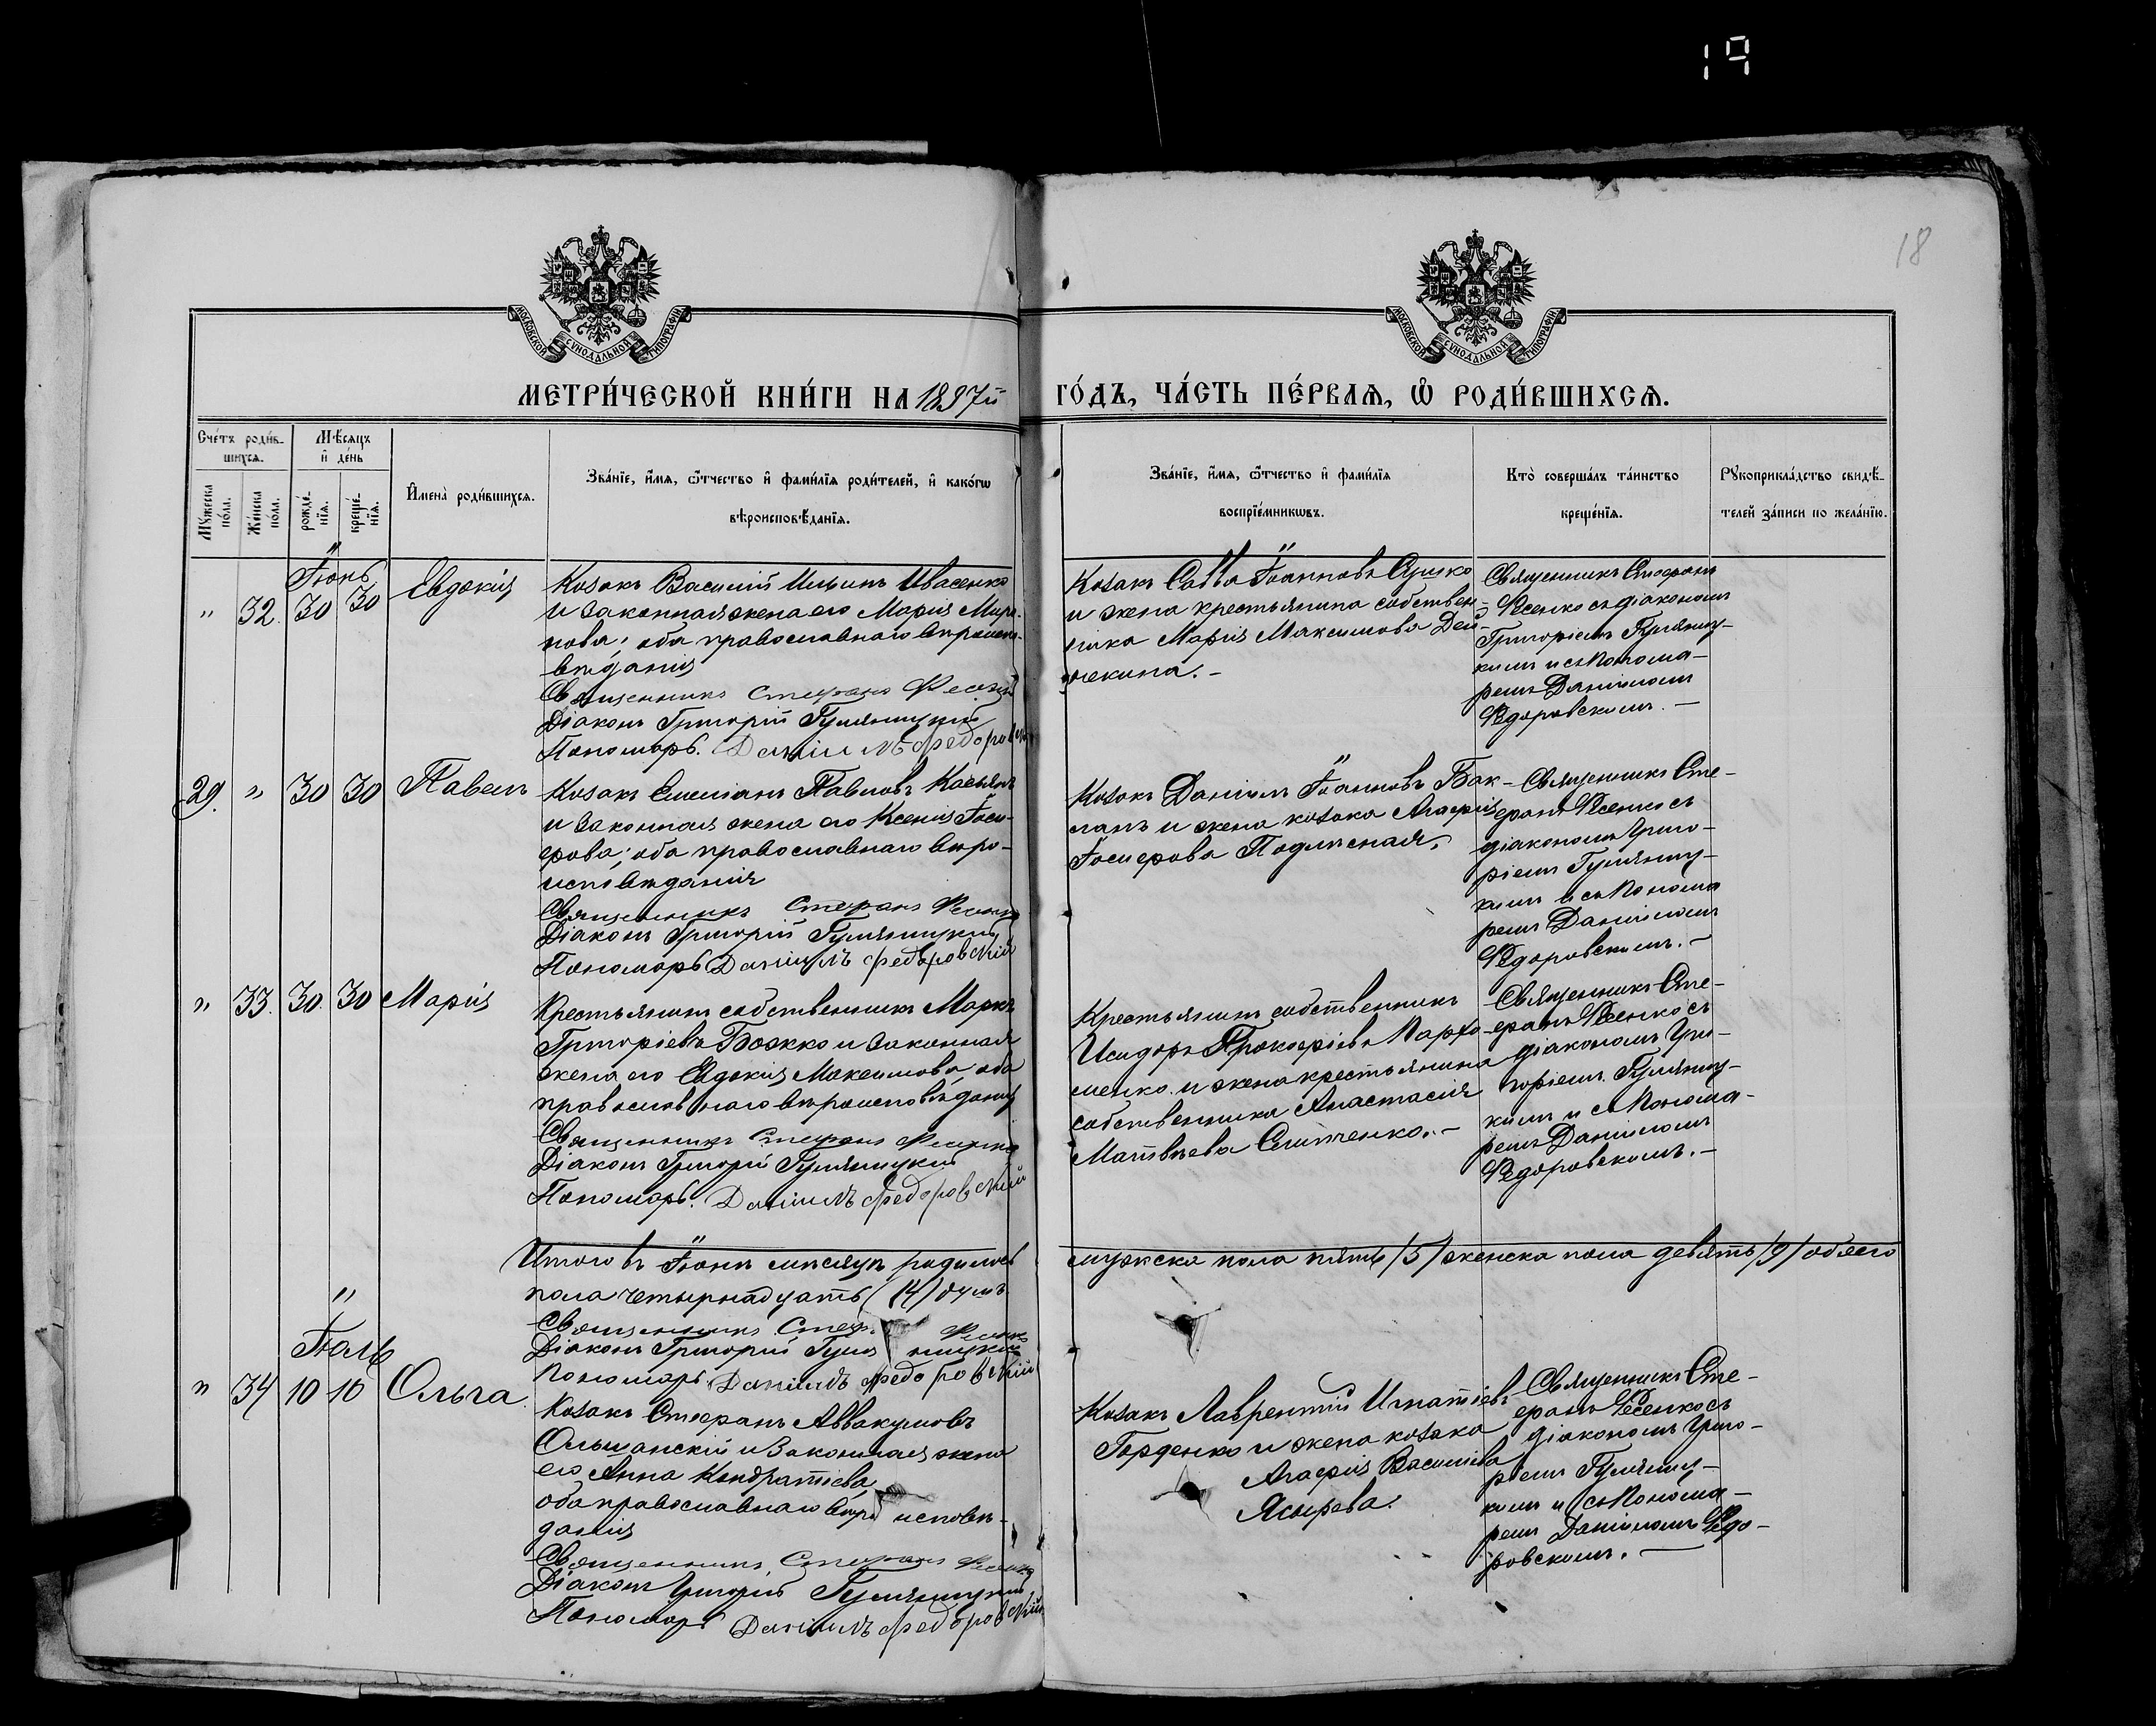 19
18
МОСКОВСКОЙ СѴНОДАЛЬНОЙ ТИПОГРАФІИ
МОСКОВСКОЙ СѴНОДАЛЬНОЙ ТИПОГРАФІИ
МЕТРИ́ЧЕСКОЙ КНИ́ГИ НА 1897й ГО́ДЪ, ЧА́СТЬ ПЕ́РВАѦ, Ѽ РОДИ́ВШИХСѦ.
Сче́тъ роди́в-
шихсѧ.
Мѣ́сѧцъ
и҆ де́нь
Мꙋ́жеска
по́ла.
Же́нска
по́ла.
рожде́-
нїѧ.
креще́-
нїѧ.
И҆мена̀ роди́вшихсѧ.
Зва́нїе, и҆́мѧ, ѻ҆́тчество и҆ фами́лїѧ роди́телей, и҆ како́гѡ
вѣроисповѣ́данїѧ.
Зва́нїе, и҆́мѧ, ѻ҆́тчество и҆ фами́лїѧ
воспрїе́мникѡвъ.
Кто̀ соверша́лъ та́инство
креще́нїѧ.
Рꙋкоприкла́дство свидѣ́-
телей за́писи по жела́нїю.
Іюнь
" 32. 30 30 Евдокія
Козакъ Василій Ильинъ Ивасенко
и законная жена его Марія Миро-
нова; оба православнаго вѣроиспо-
вѣданія
Священникъ Стефанъ Фесенко
Діаконъ Григорій Гумяницкій
Пономарь. Даніилъ Федоровскій
Козакъ Савва Іоанновъ
и жена крестьянина собствен-
ника Марія Максимова Дей-
некина.-
Священникъ Стефанъ
Фесенко съ діакономъ
Григоріемъ Гумяниц-
кимъ и съ Понома-
ремъ Даніиломъ
Федоровскимъ. -
29. " 30 30 Павелъ
Козакъ Емеліанъ Павловъ Касьянъ
и законная жена его Ксенія Іоси-
фова; оба православнаго вѣро-
исповѣданія
Священникъ Стефанъ Фесенко
Діаконъ Григорій Гумяницкій
Пономарь Даніилъ Федоровскій
Козакъ Даніилъ Іоанновъ Бак-
ланъ и жена козака Агафія
Іосифова Подлѣсная.
Священникъ Сте-
фанъ Фесенко съ
діакономъ Григо-
ріемъ Гумяниц-
кимъ и съ Понома
ремъ Даніиломъ
Федоровскимъ. -
" 33. 30. 30 Марія
Крестьянинъ собственникъ Маркъ
Григоріевъ Божко и законная
жена его Евдокія Максимова; оба
православнаго вѣроисповѣданія
Священникъ Стефанъ Фесенко
Діаконъ Григорій Гумяницкій
Пономарь. Даніилъ Федоровскій
Крестьянинъ собственникъ
Исидоръ Прокофіевъ Пархо-
менко и жена крестьянина
собственника Анастасія
Матвѣева
Священникъ Сте-
фанъ Фесенко съ
діакономъ Гри-
горіемъ Гумяниц-
кимъ и съ Понома-
ремъ Даніиломъ
Федоровскимъ. -
Итого въ Іюнѣ мѣсяцѣ родилось мужска пола пять /5/ женска пола девять /9/ обоего
пола четырнадцать (14) душъ
Священникъ Стеф Фесенко
Діаконъ Григорій Гумяницкій
Пономарь Даніилъ Федоровскій
Іюль
" 34 10 10 Ольга.
Козакъ Стефанъ Аввакумовъ
Ольшанскій и законная жена
его Анна Кондратіева
оба православнаго вѣро исповѣ-
данія
Священникъ Стефанъ Фесенко
Діаконъ Григорій Гумяницкій
Пономарь Даніилъ Федоровскій
Козакъ Лаврентій Игнатіевъ
Горденко и жена козака
Агафія Василіева
Ясырева.
Священникъ Сте-
фанъ Фесенко съ
діакономъ Григо-
ріемъ Гумяниц-
кимъ и съ Понома-
ремъ Даніиломъ Федо-
ровскимъ. -